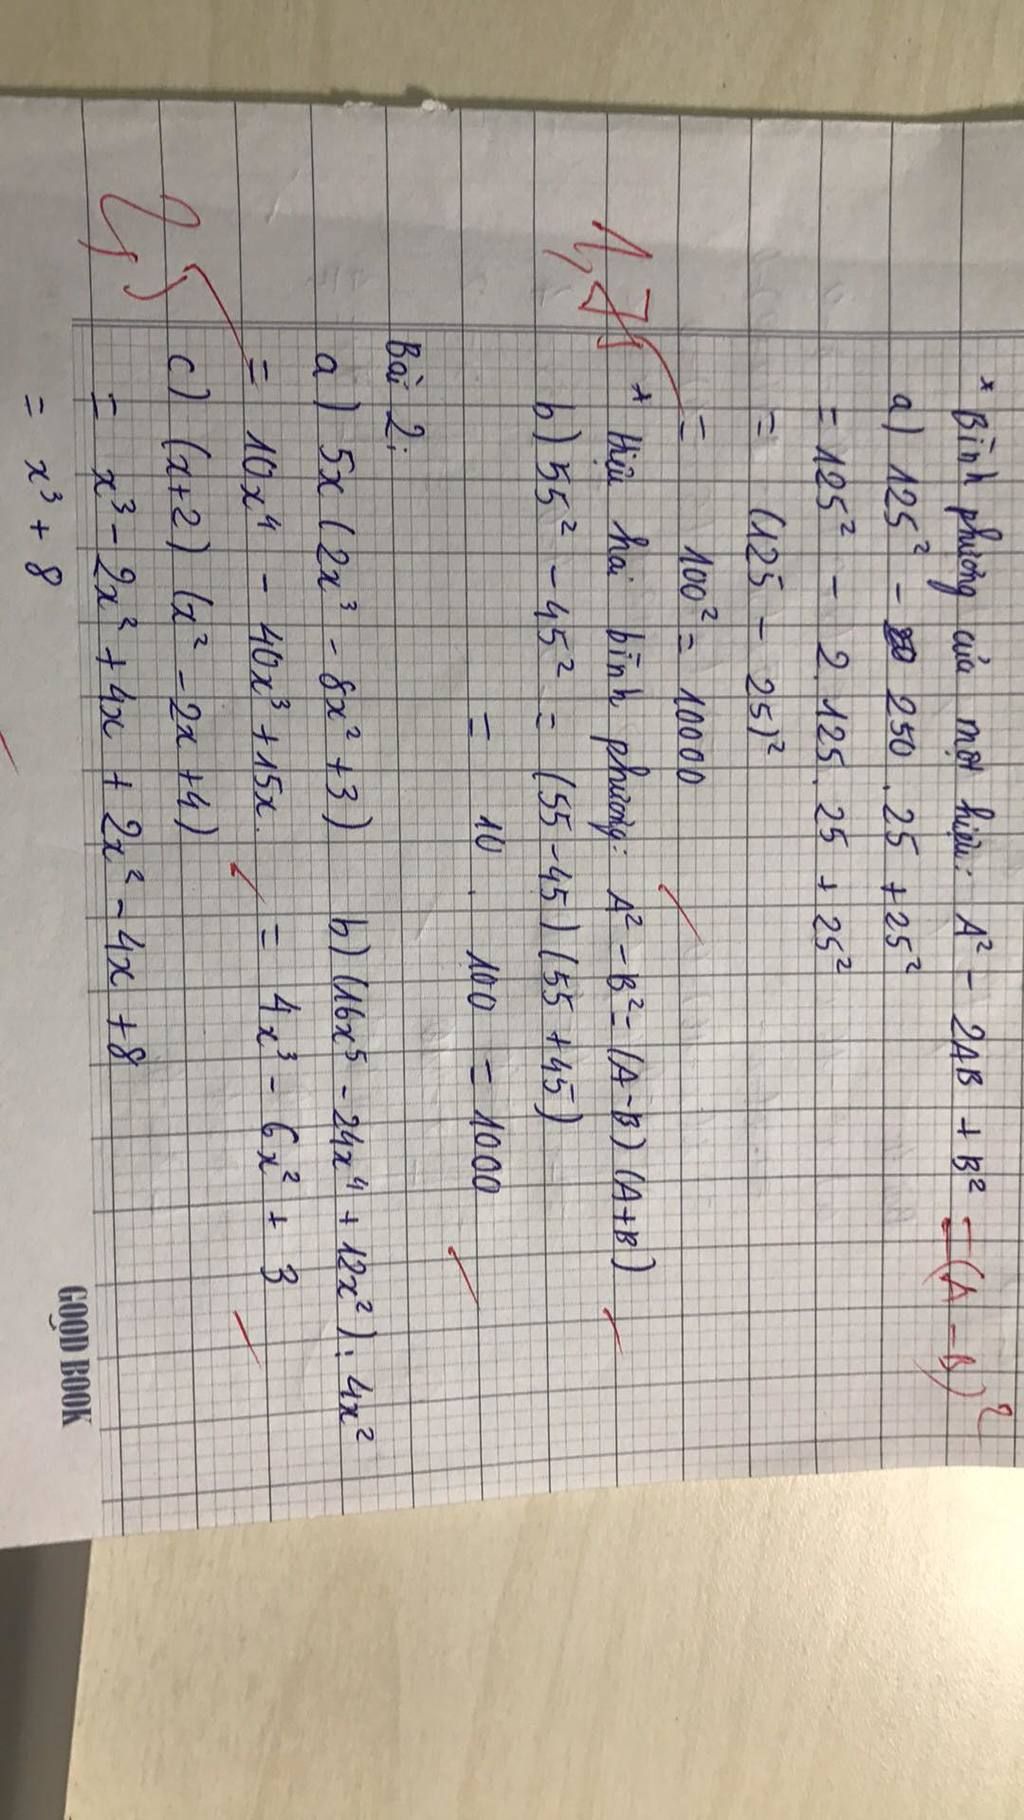 * Bình phương của một hiệu: A² - 2AB + B² = (A - B)²
a) 125² - 250 . 25 + 25²
= 125² - 2.125.25 + 25²
= (125 - 25)²
= 100² = 10000
1,75
* Hiệu hai bình phương: A² - B² = (A-B)(A+B)
b) 55² - 45² = (55-45)(55+45)
= 10 . 100 = 1000
Bài 2:
a) 5x(2x³ - 8x² + 3) b) (16x⁵ - 24x⁴ + 12x²) : 4x²
= 10x⁴ - 40x³ + 15x. = 4x³ - 6x² + 3
2,5
c) (x+2)(x² - 2x + 4)
= x³ - 2x² + 4x + 2x² - 4x + 8
= x³ + 8
GOOD BOOK